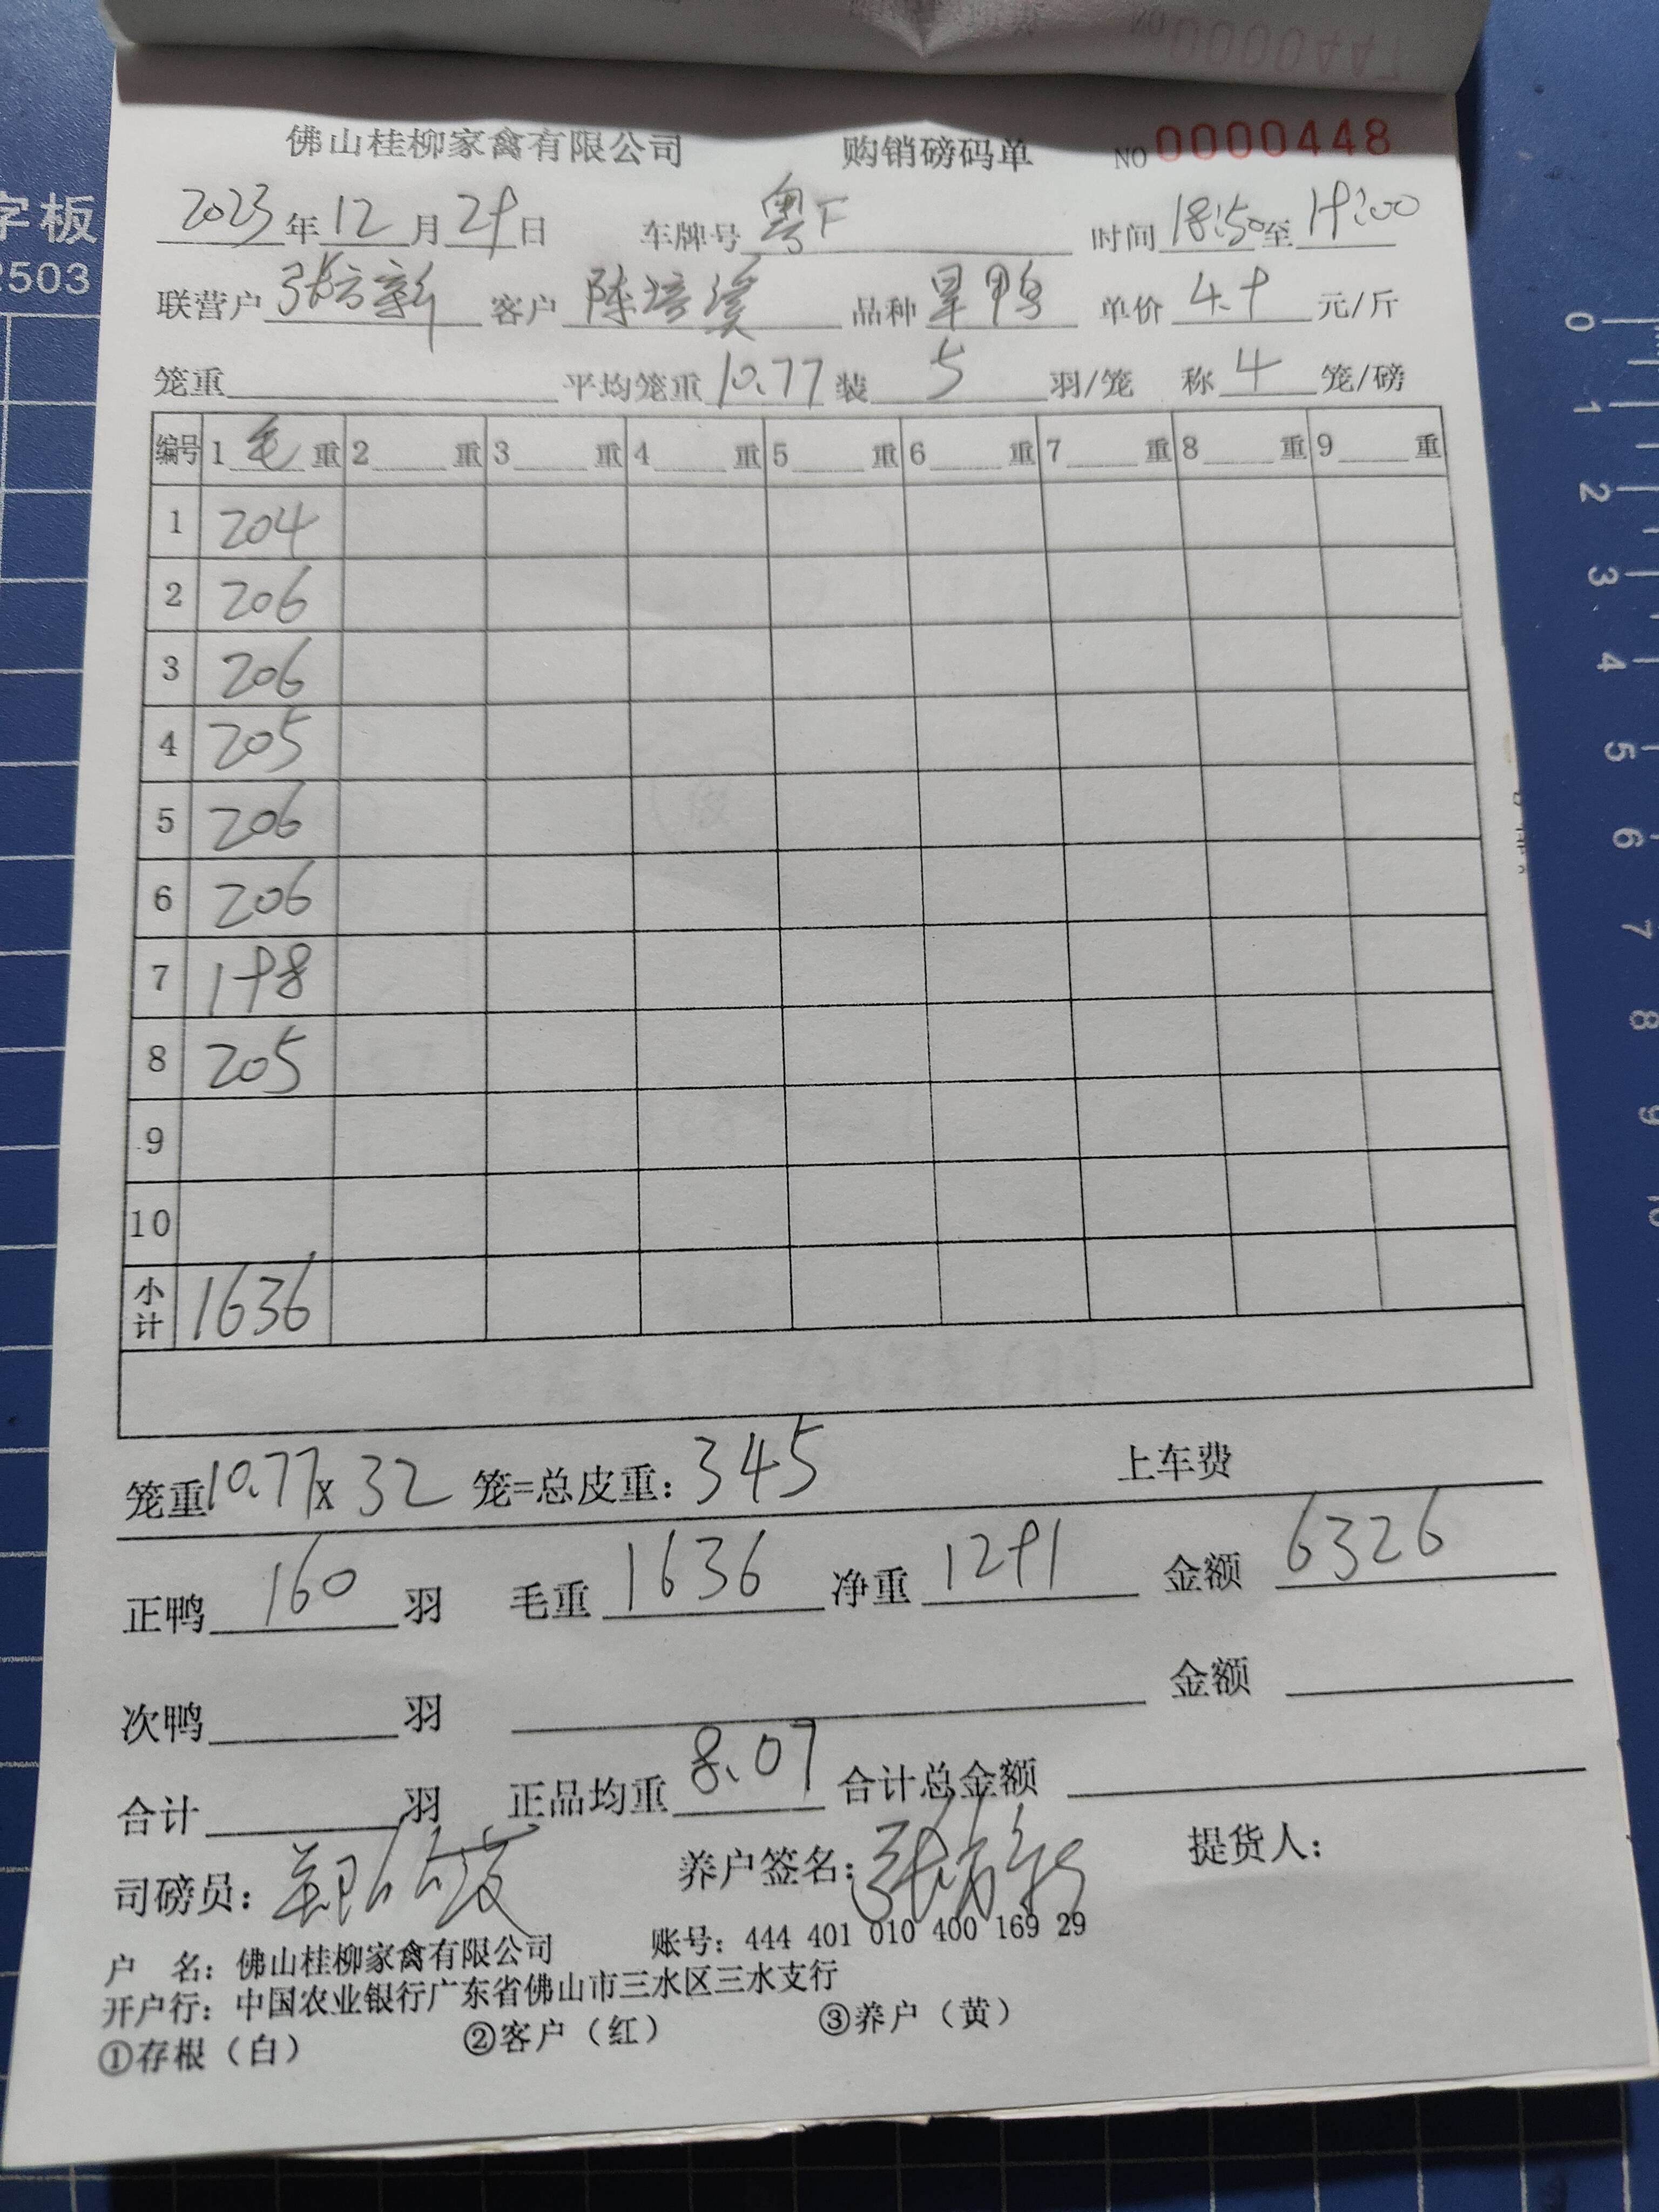 NO 0000447
字板
2503
佛山桂柳家禽有限公司 购销磅码单 NO 0000448
2023 年 12 月 29 日 车牌号 粤F 时间 18:50 至 19:00
联营户 客户 陈培溪 品种 旱鸭 单价 4.9 元/斤
笼重 平均笼重 10.77 装 5 羽/笼 称 4 笼/磅
编号 1 毛 重 2 重 3 重 4 重 5 重 6 重 7 重 8 重 9 重
1 204
2 206
3 206
4 205
5 206
6 206
7 198
8 205
9
10
小计 1636
笼重 10.77 x 32 笼=总皮重: 345 上车费
正鸭 160 羽 毛重 1636 净重 1291 金额 6326
次鸭 羽 金额
合计 羽 正品均重 8.07 合计总金额
司磅员: 养户签名: 提货人:
户 名: 佛山桂柳家禽有限公司 账号: 444 401 010 400 169 29
开户行: 中国农业银行广东省佛山市三水区三水支行
①存根(白) ②客户(红) ③养户(黄)
0
1
2
3
4
5
6
7
8
9
10